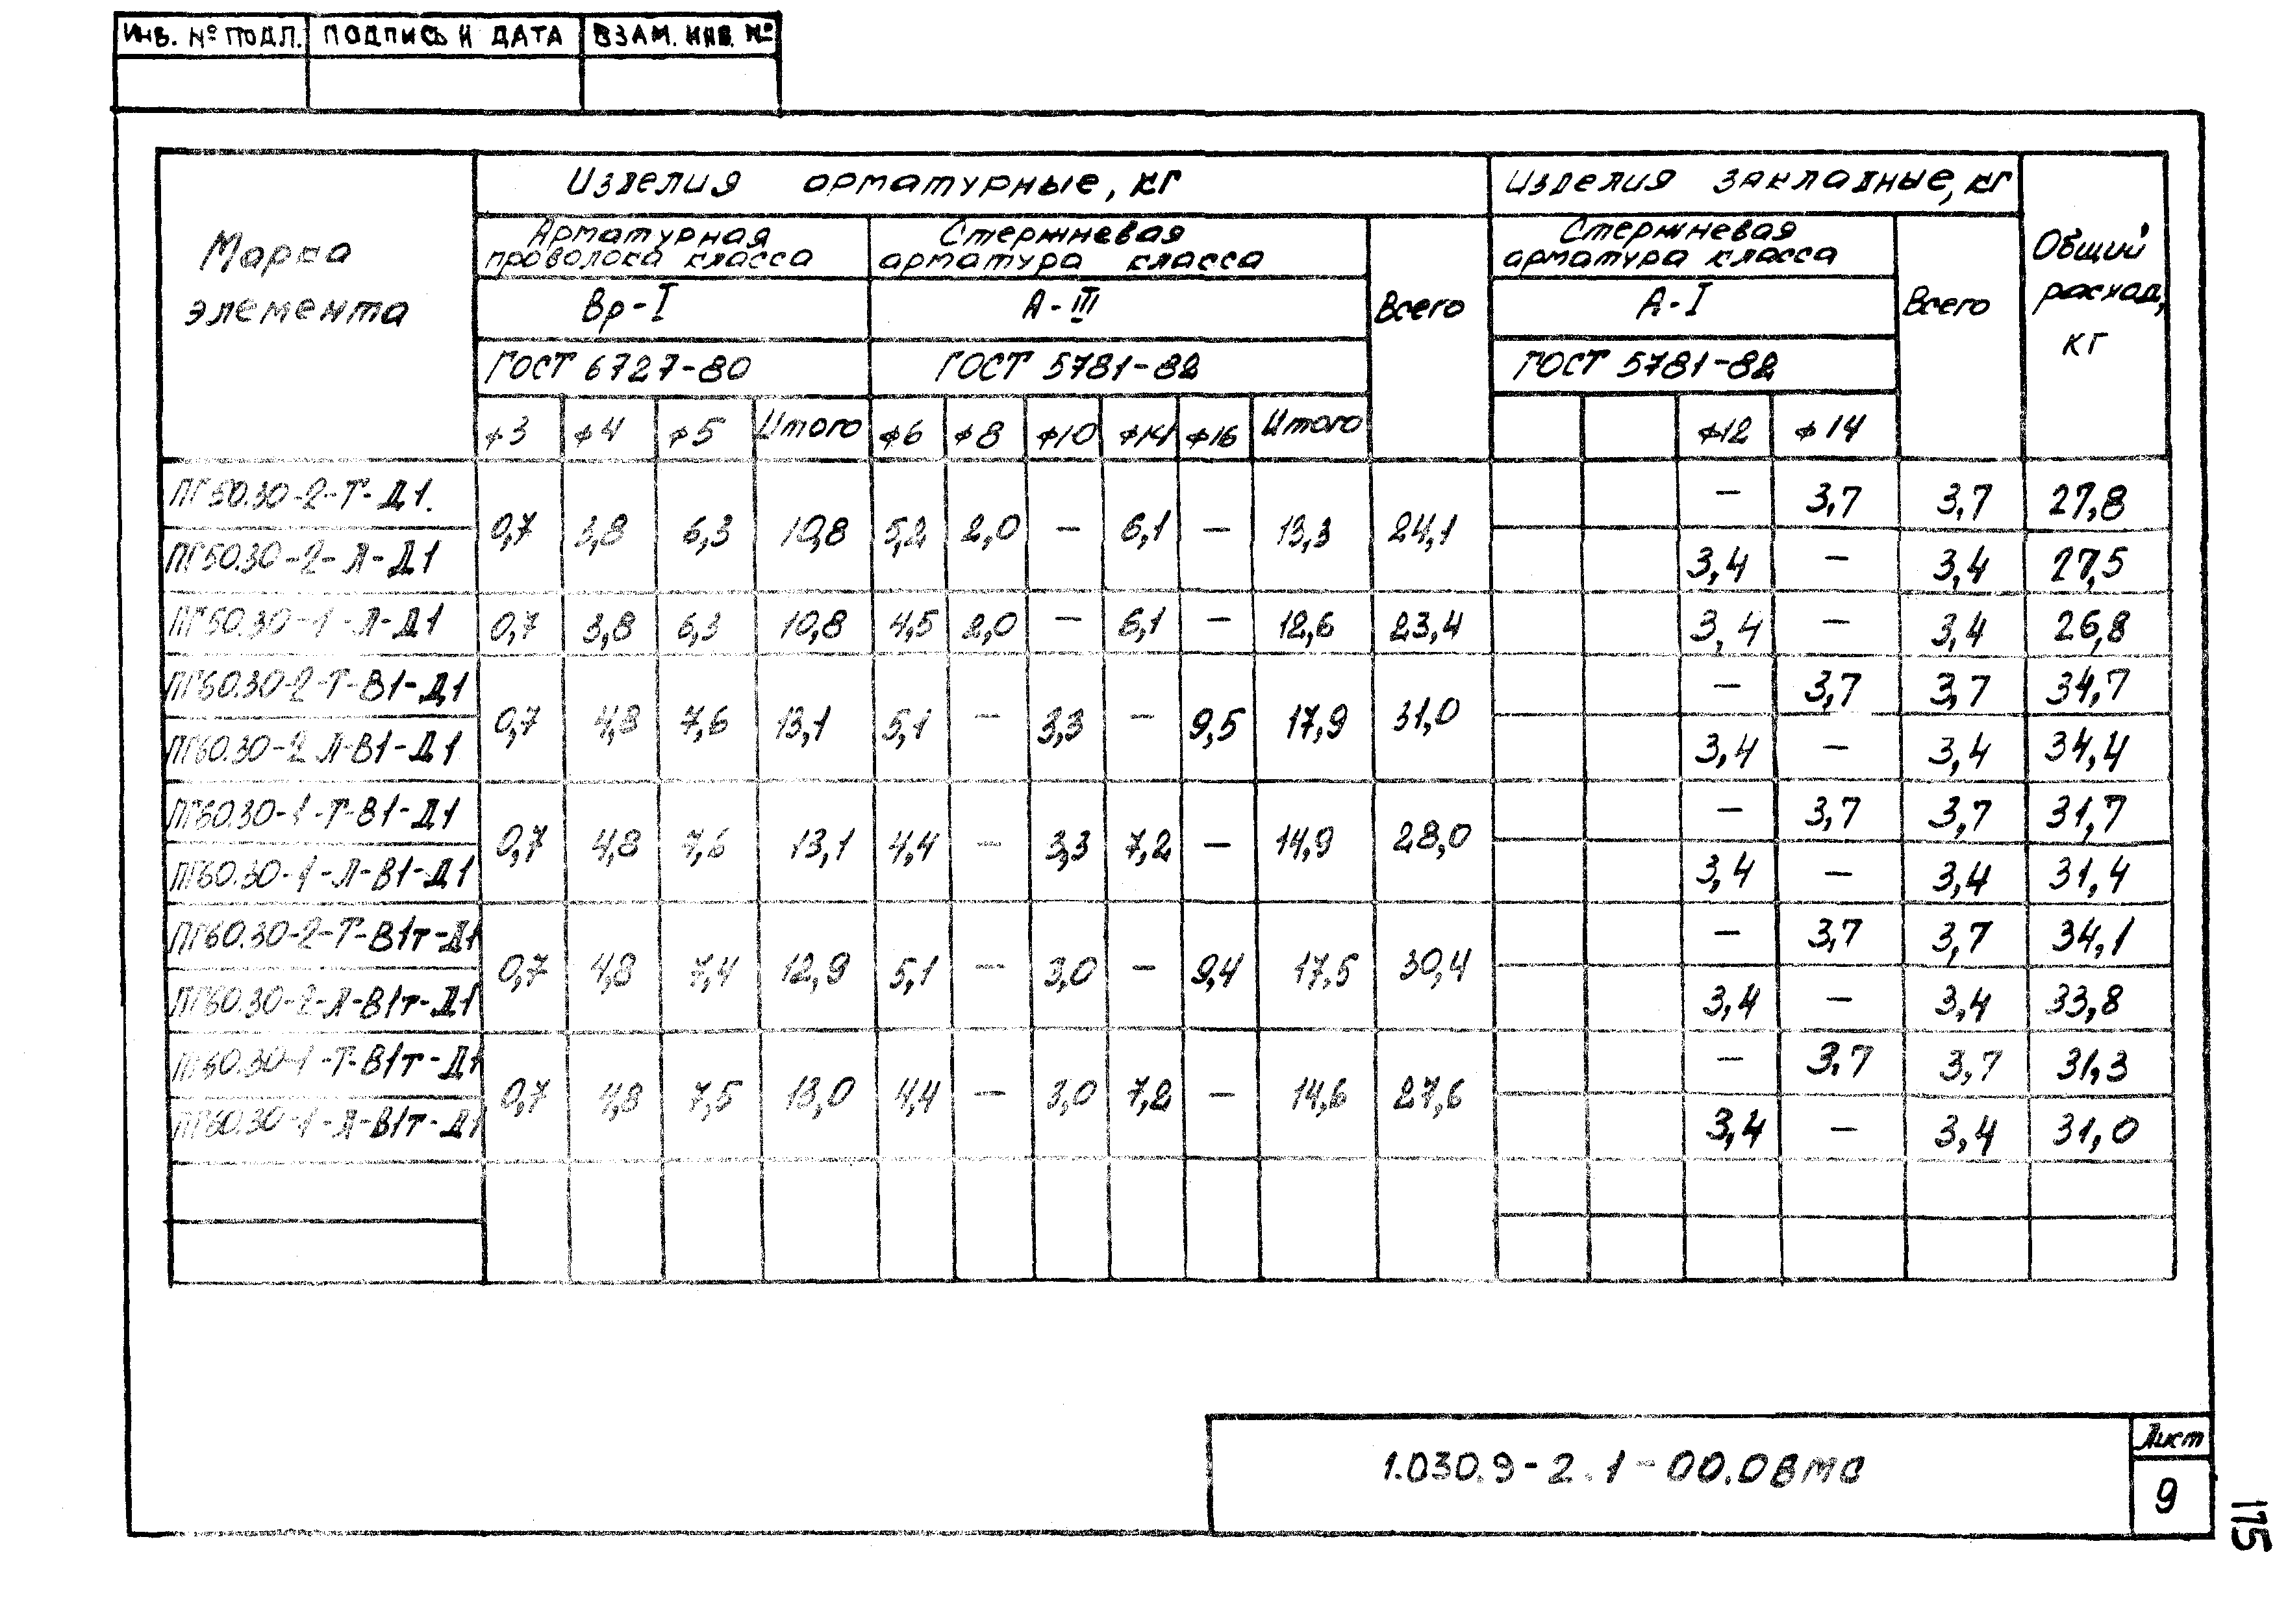 ИНВ. № ПОДЛ. ПОДПИСЬ И ДАТА ВЗАМ. ИНВ. №
Марка элемента
Изделия арматурные, кг
Изделия закладные, кг
Общий расход, кг
Арматурная проволока класса
Стержневая арматура класса
Всего
Стержневая арматура класса
Всего
Вр-I
А-III
А-I
ГОСТ 6727-80
ГОСТ 5781-82
ГОСТ 5781-82
ф3 ф4 ф5 Итого ф6 ф8 ф10 ф14 ф16 Итого ф12 ф14
ПГ50.30-2-Т-Д1. — 3,7 3,7 27,8
0,7 3,8 6,3 10,8 5,2 2,0 — 6,1 — 13,3 24,1
ПГ50.30-2-Л-Д1 3,4 — 3,4 27,5
ПГ50.30-1-Л-Д1 0,7 3,8 6,3 10,8 4,5 2,0 — 6,1 — 12,6 23,4 3,4 — 3,4 26,8
ПГ60.30-2-Т-В1-Д1 — 3,7 3,7 34,7
0,7 4,8 7,6 13,1 5,1 — 3,3 — 9,5 17,9 31,0
ПГ60.30-2 Л-В1-Д1 3,4 — 3,4 34,4
ПГ60.30-1-Т-В1-Д1 — 3,7 3,7 31,7
0,7 4,8 7,6 13,1 4,4 — 3,3 7,2 — 14,9 28,0
ПГ60.30-1-Л-В1-Д1 3,4 — 3,4 31,4
ПГ60.30-2-Т-В1т-Д1 — 3,7 3,7 34,1
0,7 4,8 7,4 12,9 5,1 — 3,0 — 9,4 17,5 30,4
ПГ60.30-2-Л-В1т-Д1 3,4 — 3,4 33,8
ПГ60.30-1-Т-В1т-Д1 — 3,7 3,7 31,3
0,7 4,8 7,5 13,0 4,4 — 3,0 7,2 — 14,6 27,6
ПГ60.30-1-Л-В1т-Д1 3,4 — 3,4 31,0
1.030.9-2.1-00.08МС
Лист
9
175